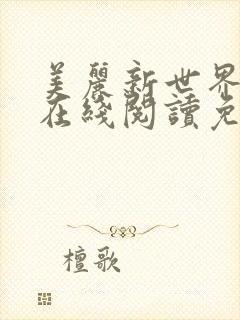 美麗新世界
在綫閱讀免
檀歌